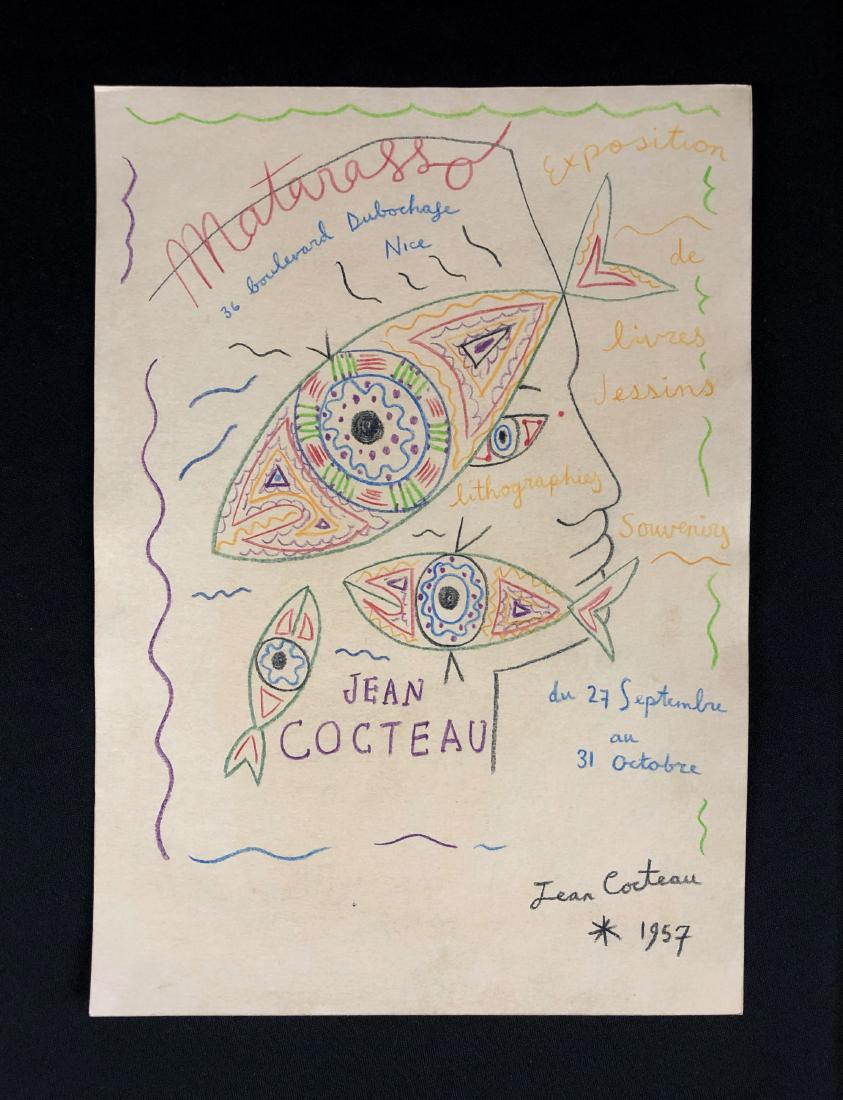 Matarasso
36 boulevard Dubochage
Nice
Exposition
de
livres
dessins
lithographies
Souvenirs
JEAN
COCTEAU
du 27 Septembre
au
31 Octobre
Jean Cocteau
* 1957